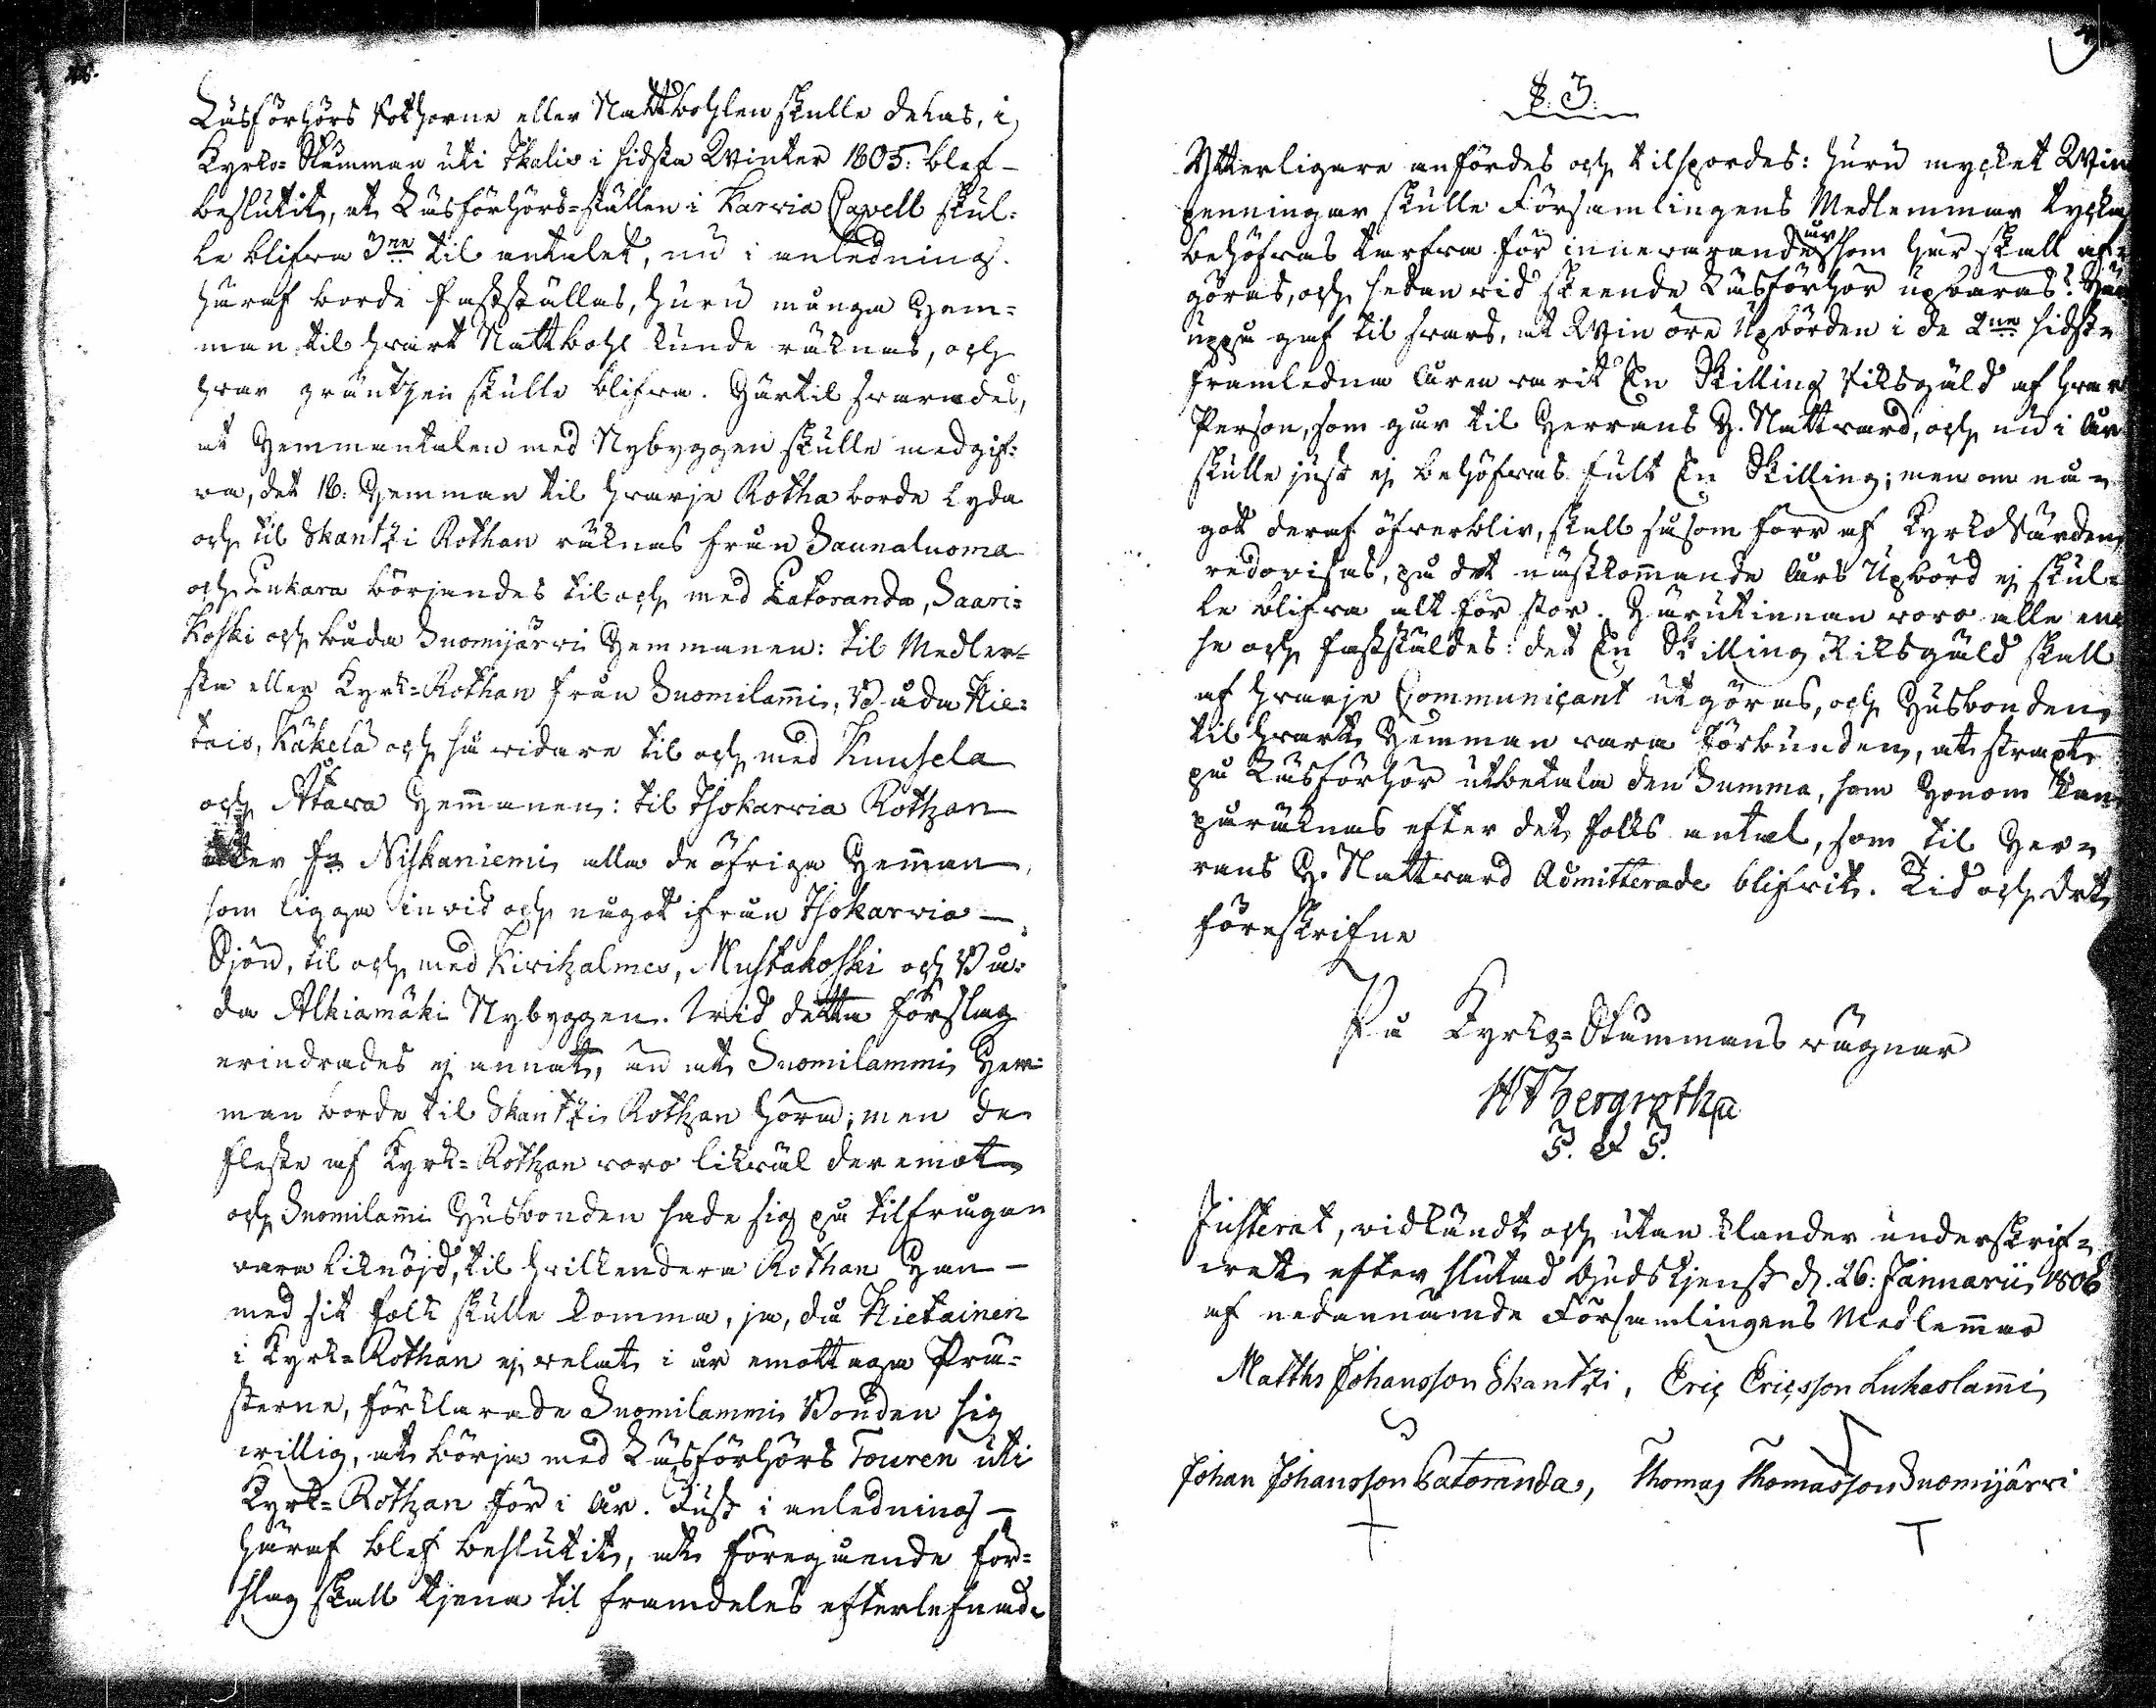 Läsförhörs Rotharne eller Nattbohlen skulle delas, i
Kyrko-Stämman uti Ikalis i sidsta Winter 1805: blef
beslutit, at Läsförhörs-ställen i Karvia Capell skul-
le blifva 3ne til antalet, nu i anledning
häraf borde fastställas, huru många Hem-
man til hvart Nattbohl kunde räknas, och
hvar gräntzen skulle blifva. Härtil svarades,
at Hemmantalen med Nybyggen skulle medgif-
va, det 16: Hemman til hvarje Rotha borde lyda
och til Skantzi Rothan räknas från Saunaluoma
och Lukara börjandes til och med Latoranda, Saari-
koski och båda Suomijärvi Hemmanen: til Medler-
sta eller Kyrk-Rothan från Suomilammi, Båda Hie-
tais, Käkelä och så vidare til och med Kuusela
och Ätävä Hemmanen: til Ihokarvia Rothan
åter fr Niskaniemi alla de öfriga Hemman,
som ligga invid och något ifrån Ihokarvia
Sjön, til och med Kirihalmes, Mustakoski och Bå-
da Alkiamäki Nybyggen. Wid detta förslag
erindrades ej annat, än at Suomilammi Hem-
man borde til Skantzi Rothan höra; men de
fleste af Kyrk-Rothan voro likväl deremot
och Suomilammi Husbonden sade sig på tilfrågan
vara liknöjd, til hvilkendera Rothan Han
med sit folk skulle komma, ja, då Hietainen
i Kyrk-Rothan ej velat i år emottaga Prä-
sterne, förklarade Suomilammi Bonden sig
willig, at börja med Läsförhörs Touren uti
Kyrk-Rothan för i år. Just i anledning
häraf blef beslutit, at föregående för-
slag skall tjena til framdeles efterlefnad.
§. 3.
Ytterligare anfördes och tilspordes: huru mycket Win
penningar skulle Församlingens Medlemmar tycka
behöfvas tarfva för innevarande år som här skall af-
göras, och sedan vid skeende Läsförhör upbäras? Här
uppå gaf til svars, at Win öre Upbörden i de 2ne sidst
framledna åren varit En Skilling Riksgäld af hvar
Person, som går til Herrans H. Nattvard, och nu i år
skulle just ej behöfvas fult En Skilling; men om nå-
got deraf öfverbliv, skall såsom förr af Kyrko Värden
redovisas, på det nästkommande års Upbörd ej skul-
le blifva alt för stor. Härutinnan voro alle ene
se och fastställdes: det En Skilling Riksgäld skall
af hvarje Communicant utgöras, och Husbonden
til hvart Hemman vara förbunden, at straxt
på Läsförhör utbetala den Summa, som Honom kan
påräknas efter det folks antal, som til Her-
rans H. Nattvard Admitterade blifvit. Tid och Ort
föreskrifne
På Kyrko-Stämmans vägnar
Justerat, vidkändt och utan klander underskrif-
vit, efter slutad Gudstjenst d. 26: Januarii 1806
af nedannämde Församlingens Medlemmar
Matths Johansson Skantzi, Eric Ericsson Lukaslammi
Johan Johansson Latoranda, Thomas Thomasson Suomijärvi